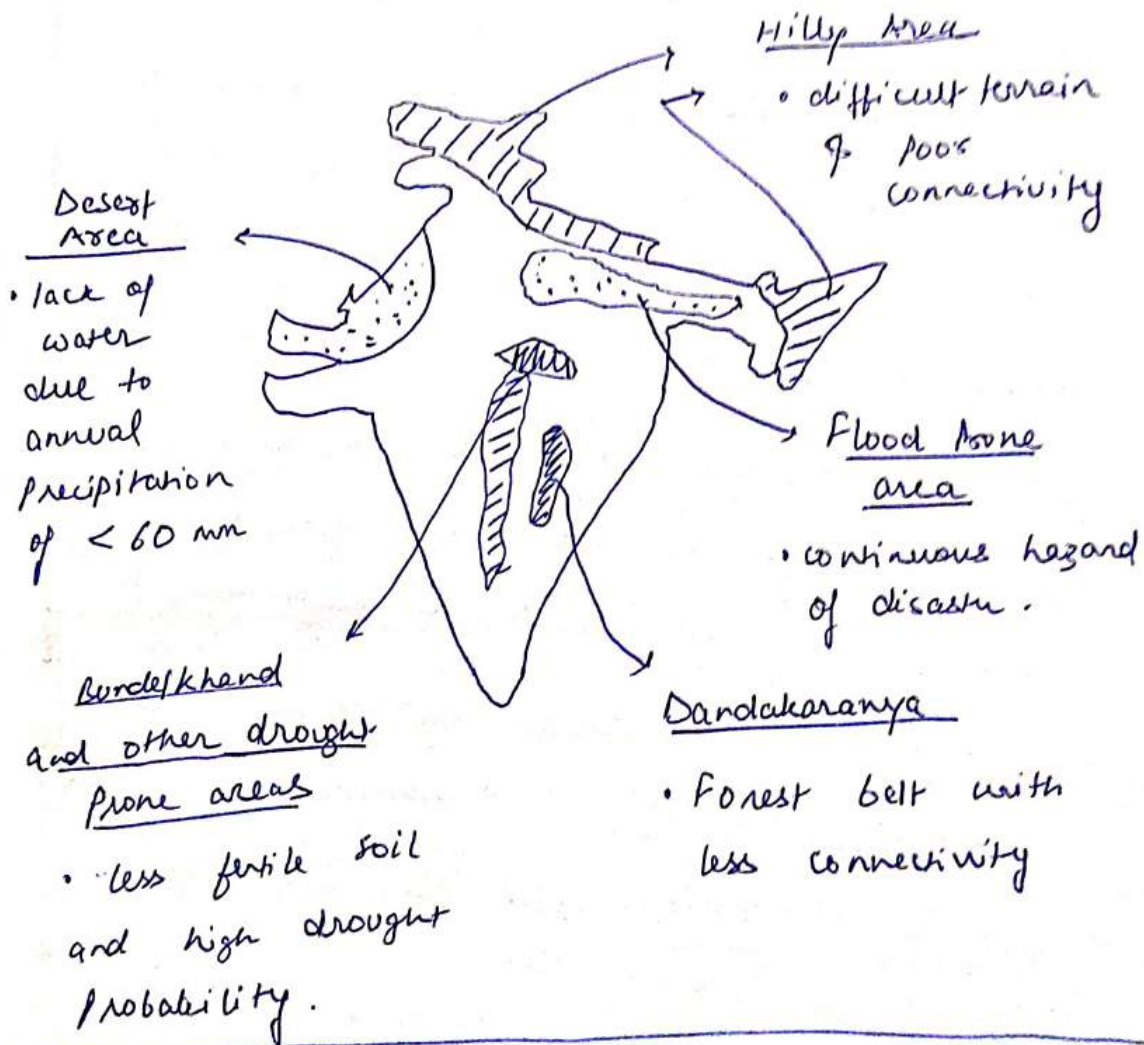 Hilly Area
• difficult terrain
& poor
connectivity
Desert
Area
• lack of
water
due to
annual
precipitation
of < 60 mm
Flood Prone
area
• continuous hazard
of disaster.
Bundelkhand
and other drought
Prone areas
• less fertile soil
and high drought
Probability.
Dandakaranya
• Forest belt with
less connectivity